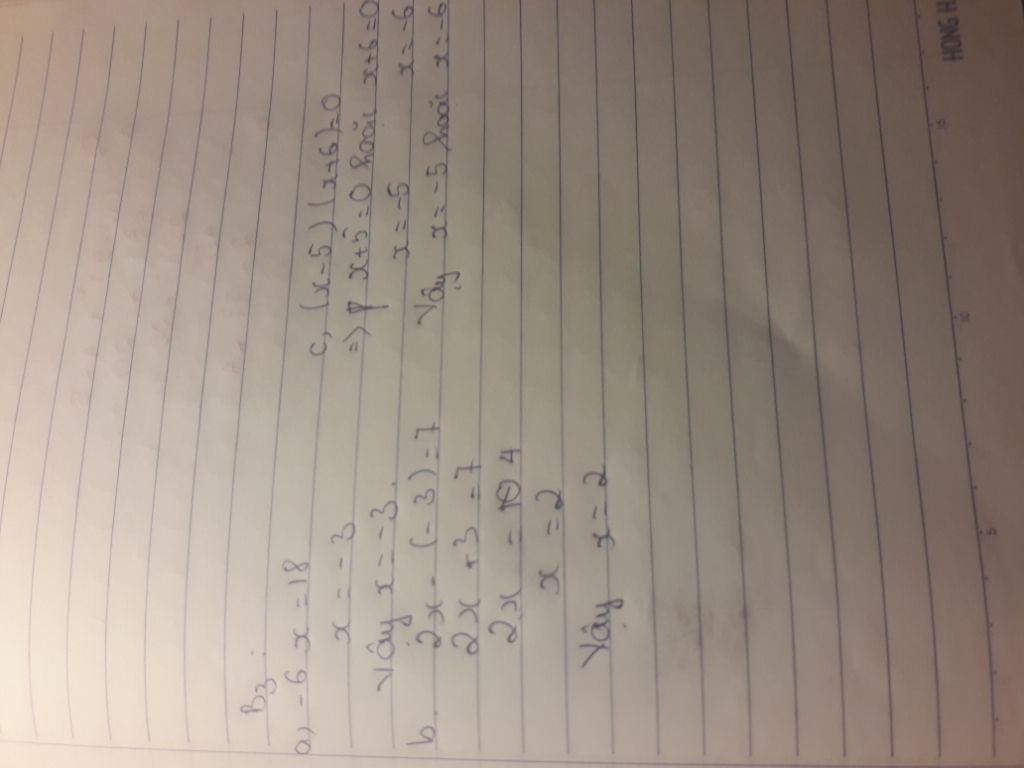 B2:
a) -6x = 18
x = -3
Vậy x = -3.
b. 2x - (-3) = 7
2x + 3 = 7
2x = 4
x = 2
Vậy x = 2
c, (x-5)(x+6)=0
=> x+5=0 hoặc x+6=0
x = -5 x = -6
Vậy x = -5 hoặc x = -6
HONG H
5
10
15